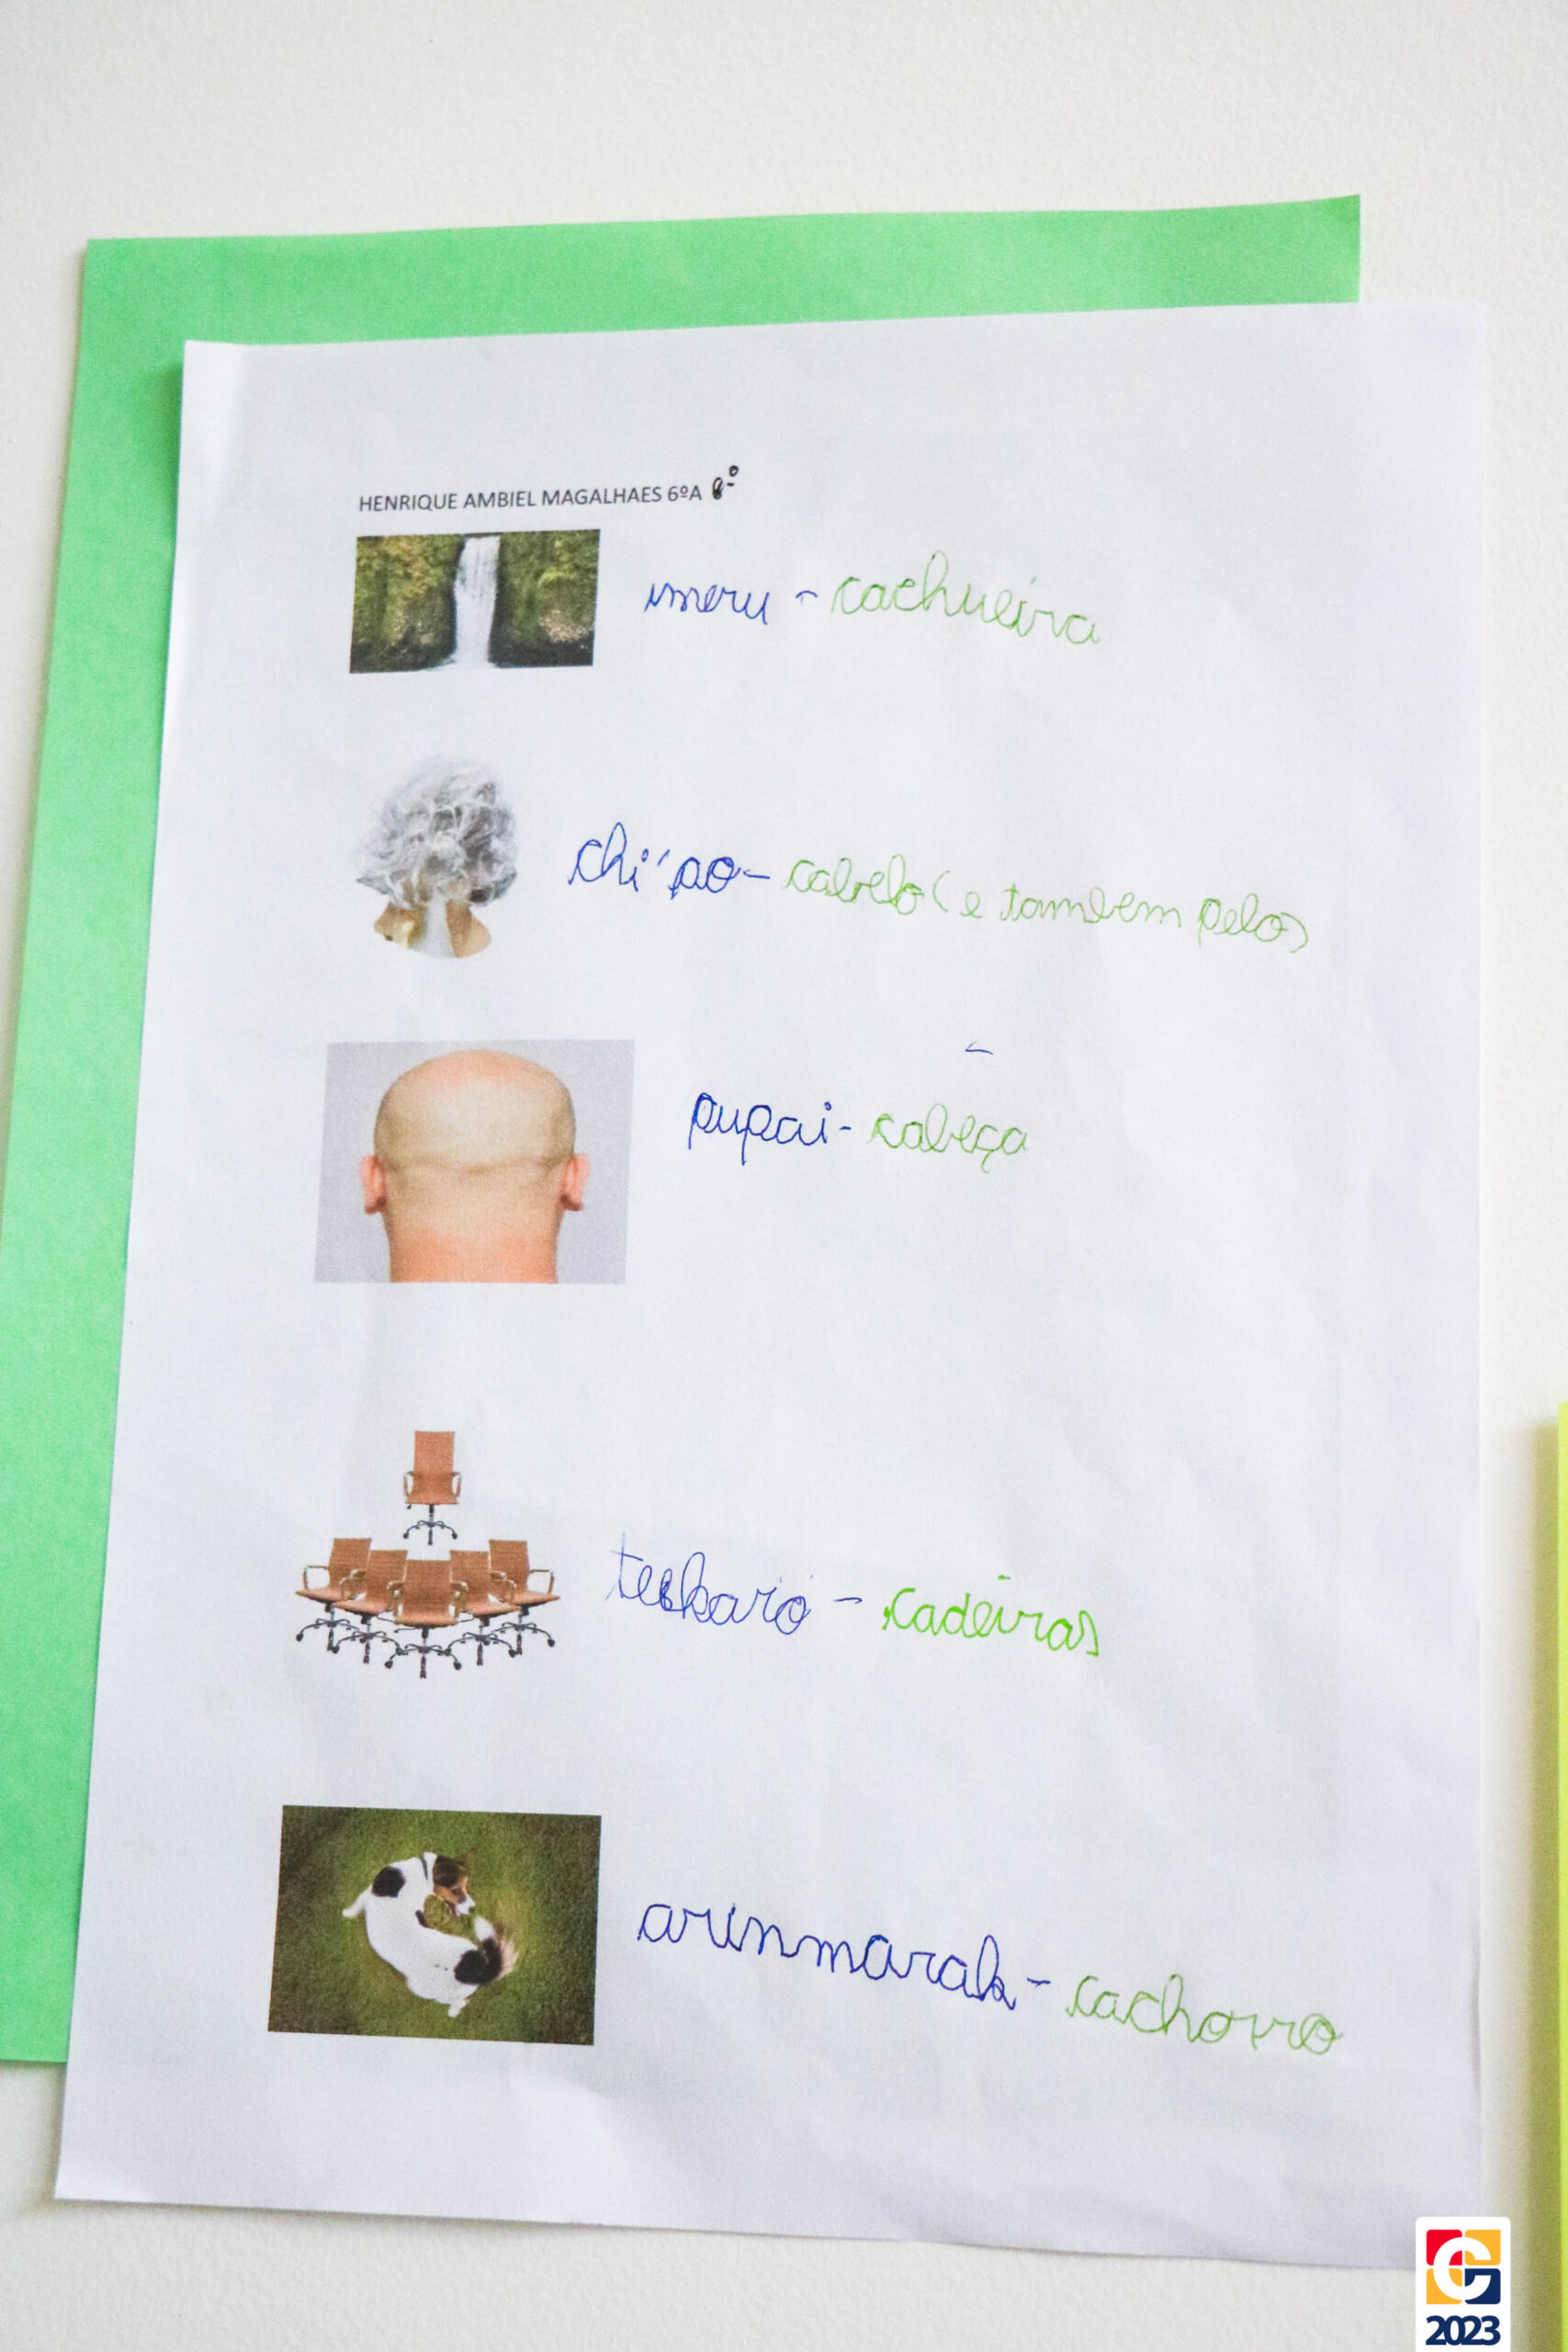 HENRIQUE AMBIEL MAGALHAES 6ºA
imeru - cachueira
chi'po - cabelo (e tambem pelos)
pupai - cabeça
cadeiras
arinmarak - cachorro
2023